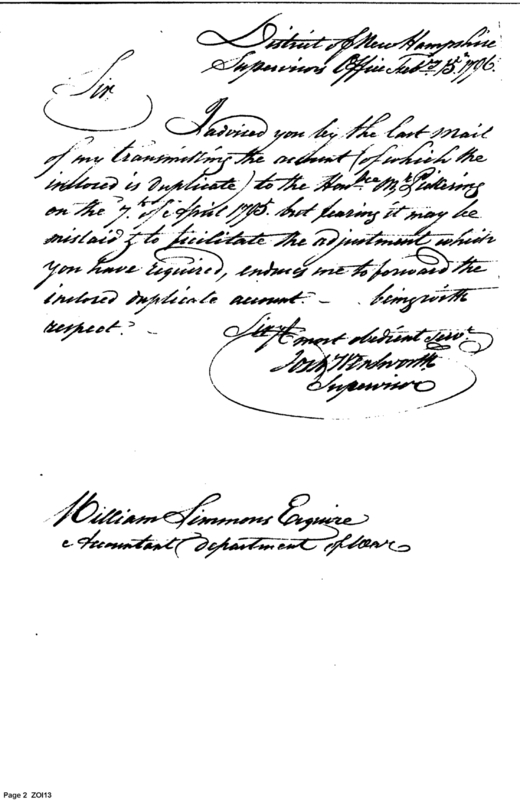 District of New Hampshire
Supervisors Office Feby 15th 1796.
Sir
I advised you by the last mail
of my transmitting the account (of which the
inclosed is duplicate) to the Honble Mr Pickering
on the 7th of April 1795. but fearing it may be
mislaid & to facilitate the adjustment which
you have required, enduces me to forward the
inclosed duplicate account. – being with
respect. –
Sir yr most obedient Servt
Josh Wentworth
Supervisor
William Simmons Esquire
Accountant department of War
Page 2 ZOI13